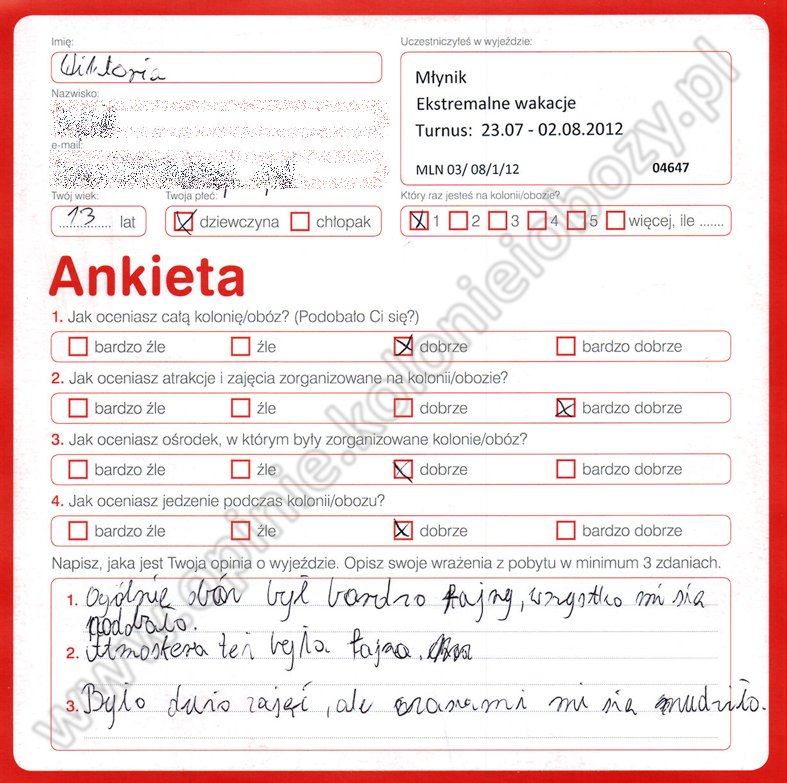 Imię:
Wiktoria
Uczestniczyłeś w wyjeździe:
Młynik
Ekstremalne wakacje
Turnus: 23.07 - 02.08.2012
MLN 03/ 08/1/12 04647
Nazwisko:
e-mail:
Twój wiek:
13 lat
Twoja płeć:
dziewczyna chłopak
Który raz jesteś na kolonii/obozie?
1 2 3 4 5 więcej, ile .......
Ankieta
1. Jak oceniasz całą kolonię/obóz? (Podobało Ci się?)
bardzo źle źle dobrze bardzo dobrze
2. Jak oceniasz atrakcje i zajęcia zorganizowane na kolonii/obozie?
bardzo źle źle dobrze bardzo dobrze
3. Jak oceniasz ośrodek, w którym były zorganizowane kolonie/obóz?
bardzo źle źle dobrze bardzo dobrze
4. Jak oceniasz jedzenie podczas kolonii/obozu?
bardzo źle źle dobrze bardzo dobrze
Napisz, jaka jest Twoja opinia o wyjeździe. Opisz swoje wrażenia z pobytu w minimum 3 zdaniach.
1. Ogólnie obóz był bardzo fajny, wszystko mi sia
poddbało.
2. Atmosfera też była fajna.
3. Było dużo zajęć, ale czasami mi sia nudziło.
www.opinie.kolonieiobozy.pl